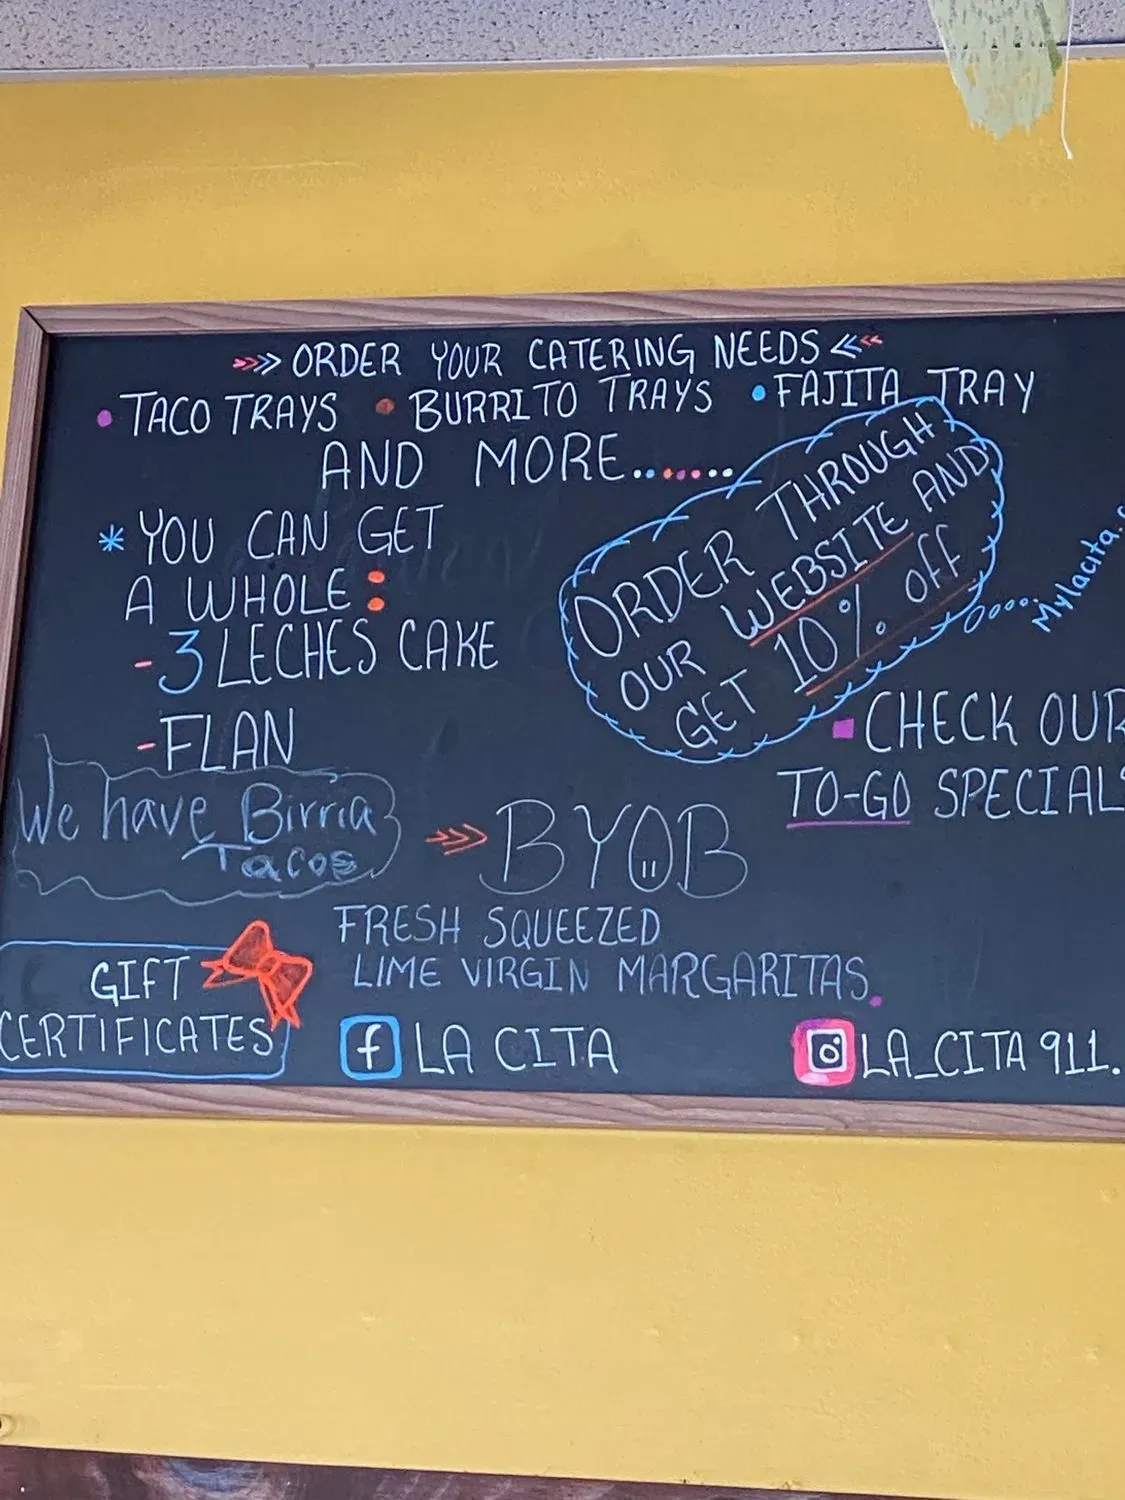 >>> ORDER YOUR CATERING NEEDS <<<
• TACO TRAYS • BURRITO TRAYS • FAJITA TRAY
AND MORE.......
* YOU CAN GET
A WHOLE:
- 3 LECHES CAKE
- FLAN
ORDER THROUGH
OUR WEBSITE AND
GET 10% off
Mylacita.
▪ CHECK OUR
TO-GO SPECIALS
We have Birria
Tacos
>>> BYOB
FRESH SQUEEZED
LIME VIRGIN MARGARITAS.
GIFT
CERTIFICATES
f LA CITA
LA_CITA 911.